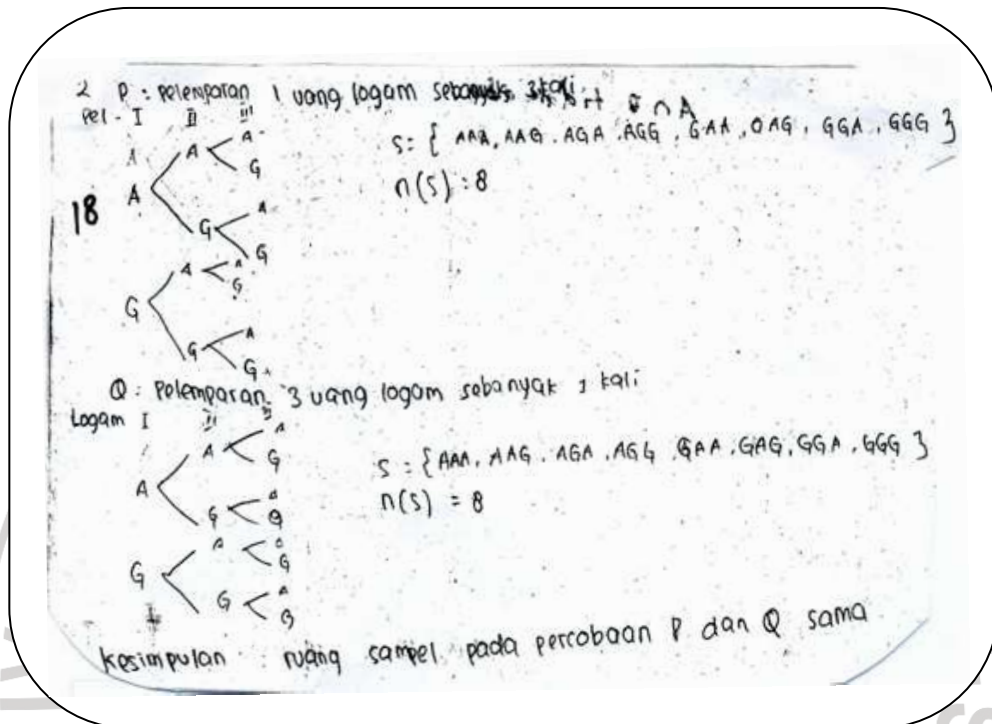 2 P : pelemparan 1 uang logam sebanyak 3 kali
Pel - I II III
S = { AAA, AAG, AGA, AGG, GAA, GAG, GGA, GGG }
n(S) = 8
18
A A A
G
G A
G
G A A
G
G A
G
Q : pelemparan 3 uang logam sebanyak 1 kali
Logam I II III
S = { AAA, AAG, AGA, AGG, GAA, GAG, GGA, GGG }
n(S) = 8
A A A
G
G A
G
G A A
G
G A
G
Kesimpulan : ruang sampel pada percobaan P dan Q sama